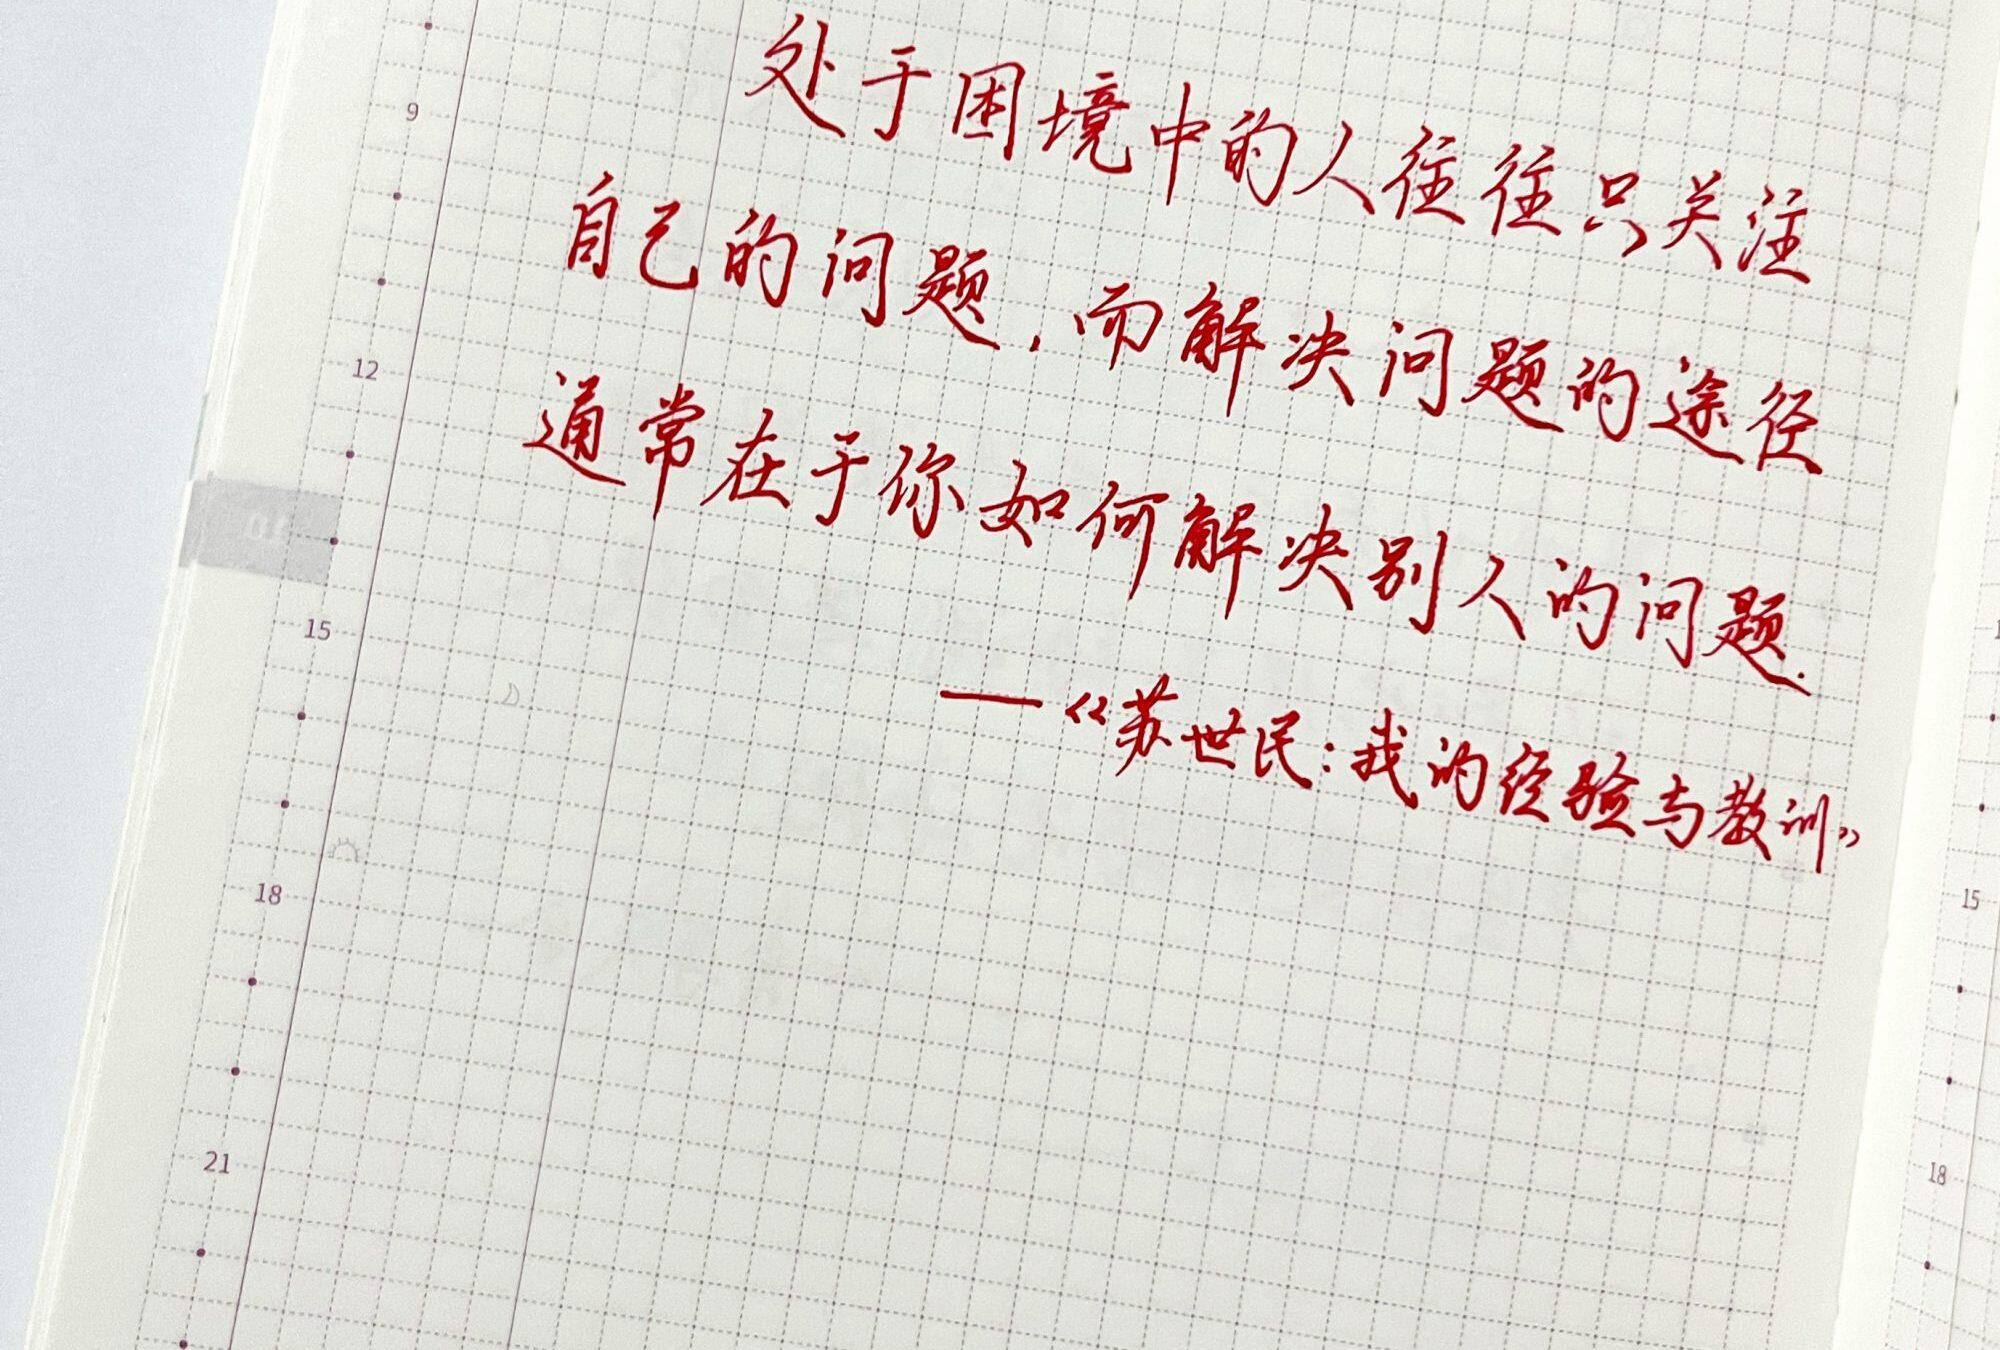 处于困境中的人往往只关注
自己的问题,而解决问题的途径
通常在于你如何解决别人的问题.
——《苏世民:我的经验与教训》
9
12
15
18
21
15
18